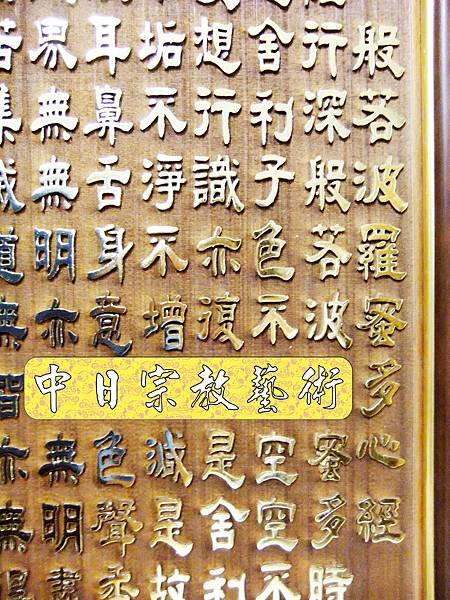 般若波羅蜜多心經
行深般若波蜜多時
舍利子色不空空不
想行識亦復是舍利
垢不淨不增減是故
耳鼻舌身意色聲香
界無無明亦無明盡
苦集滅道無智亦無得
中日宗教藝術